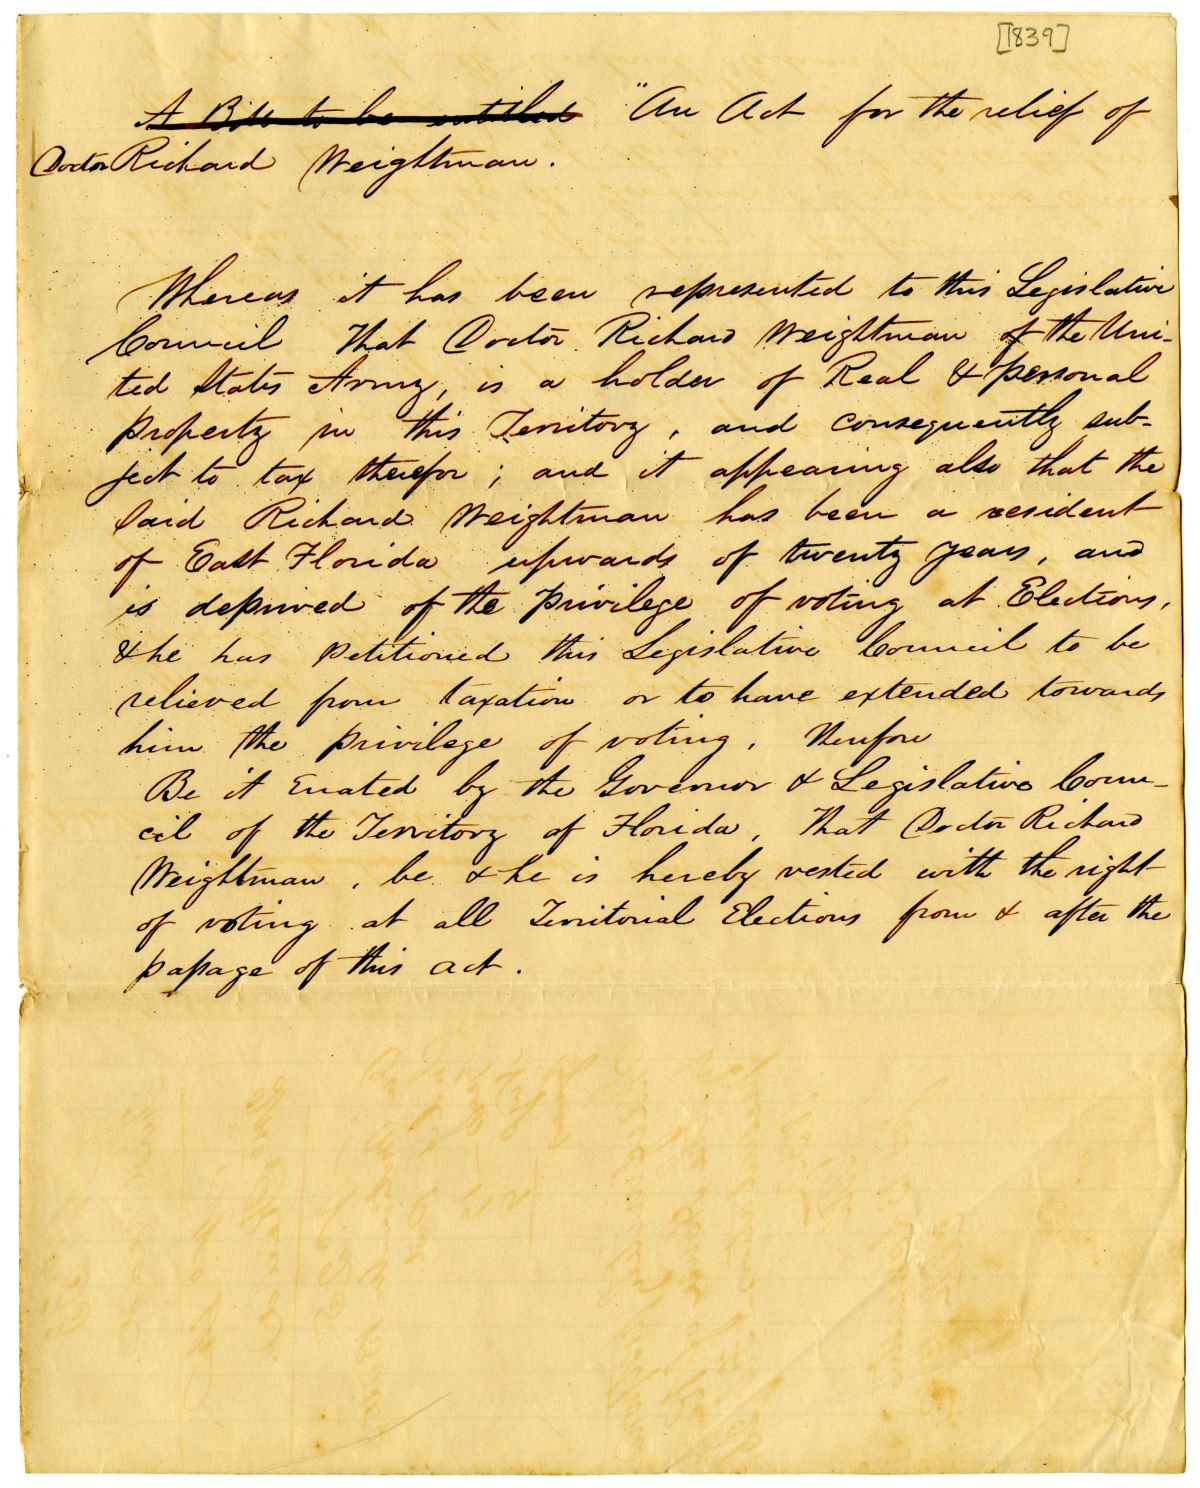 [1839]
A Bill to be entitled "An Act for the relief of
Doctor Richard Weightman.
Whereas it has been represented to this Legislative
Council that Doctor Richard Weightman of the Uni-
ted States Army, is a holder of Real & personal
property in this Territory, and consequently sub-
ject to tax therefor; and it appearing also that the
said Richard Weightman has been a resident
of East Florida upwards of twenty years, and
is deprived of the privilege of voting at Elections,
& he has petitioned this Legislative Council to be
relieved from taxation or to have extended towards
him the privilege of voting. Therefore
Be it Enated by the Governor & Legislative Coun-
cil of the Territory of Florida, That Doctor Richard
Weightman, be & he is hereby vested with the right
of voting at all Territorial Elections from & after the
passage of this act.